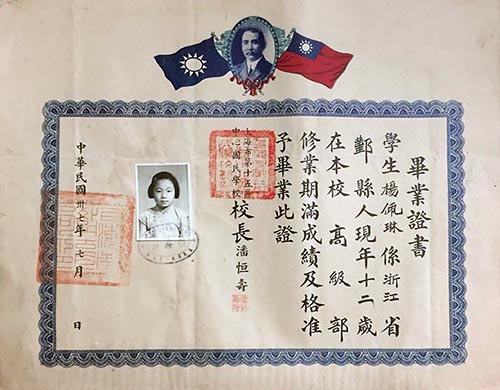 畢業證書
學生楊佩琳係浙江省
鄞縣人現年十二歲
在本校高級部
修業期滿成績及格准
予畢業此證
上海市第十五區
中心國民學校
校長潘恒壽
中華民國卅七年七月日